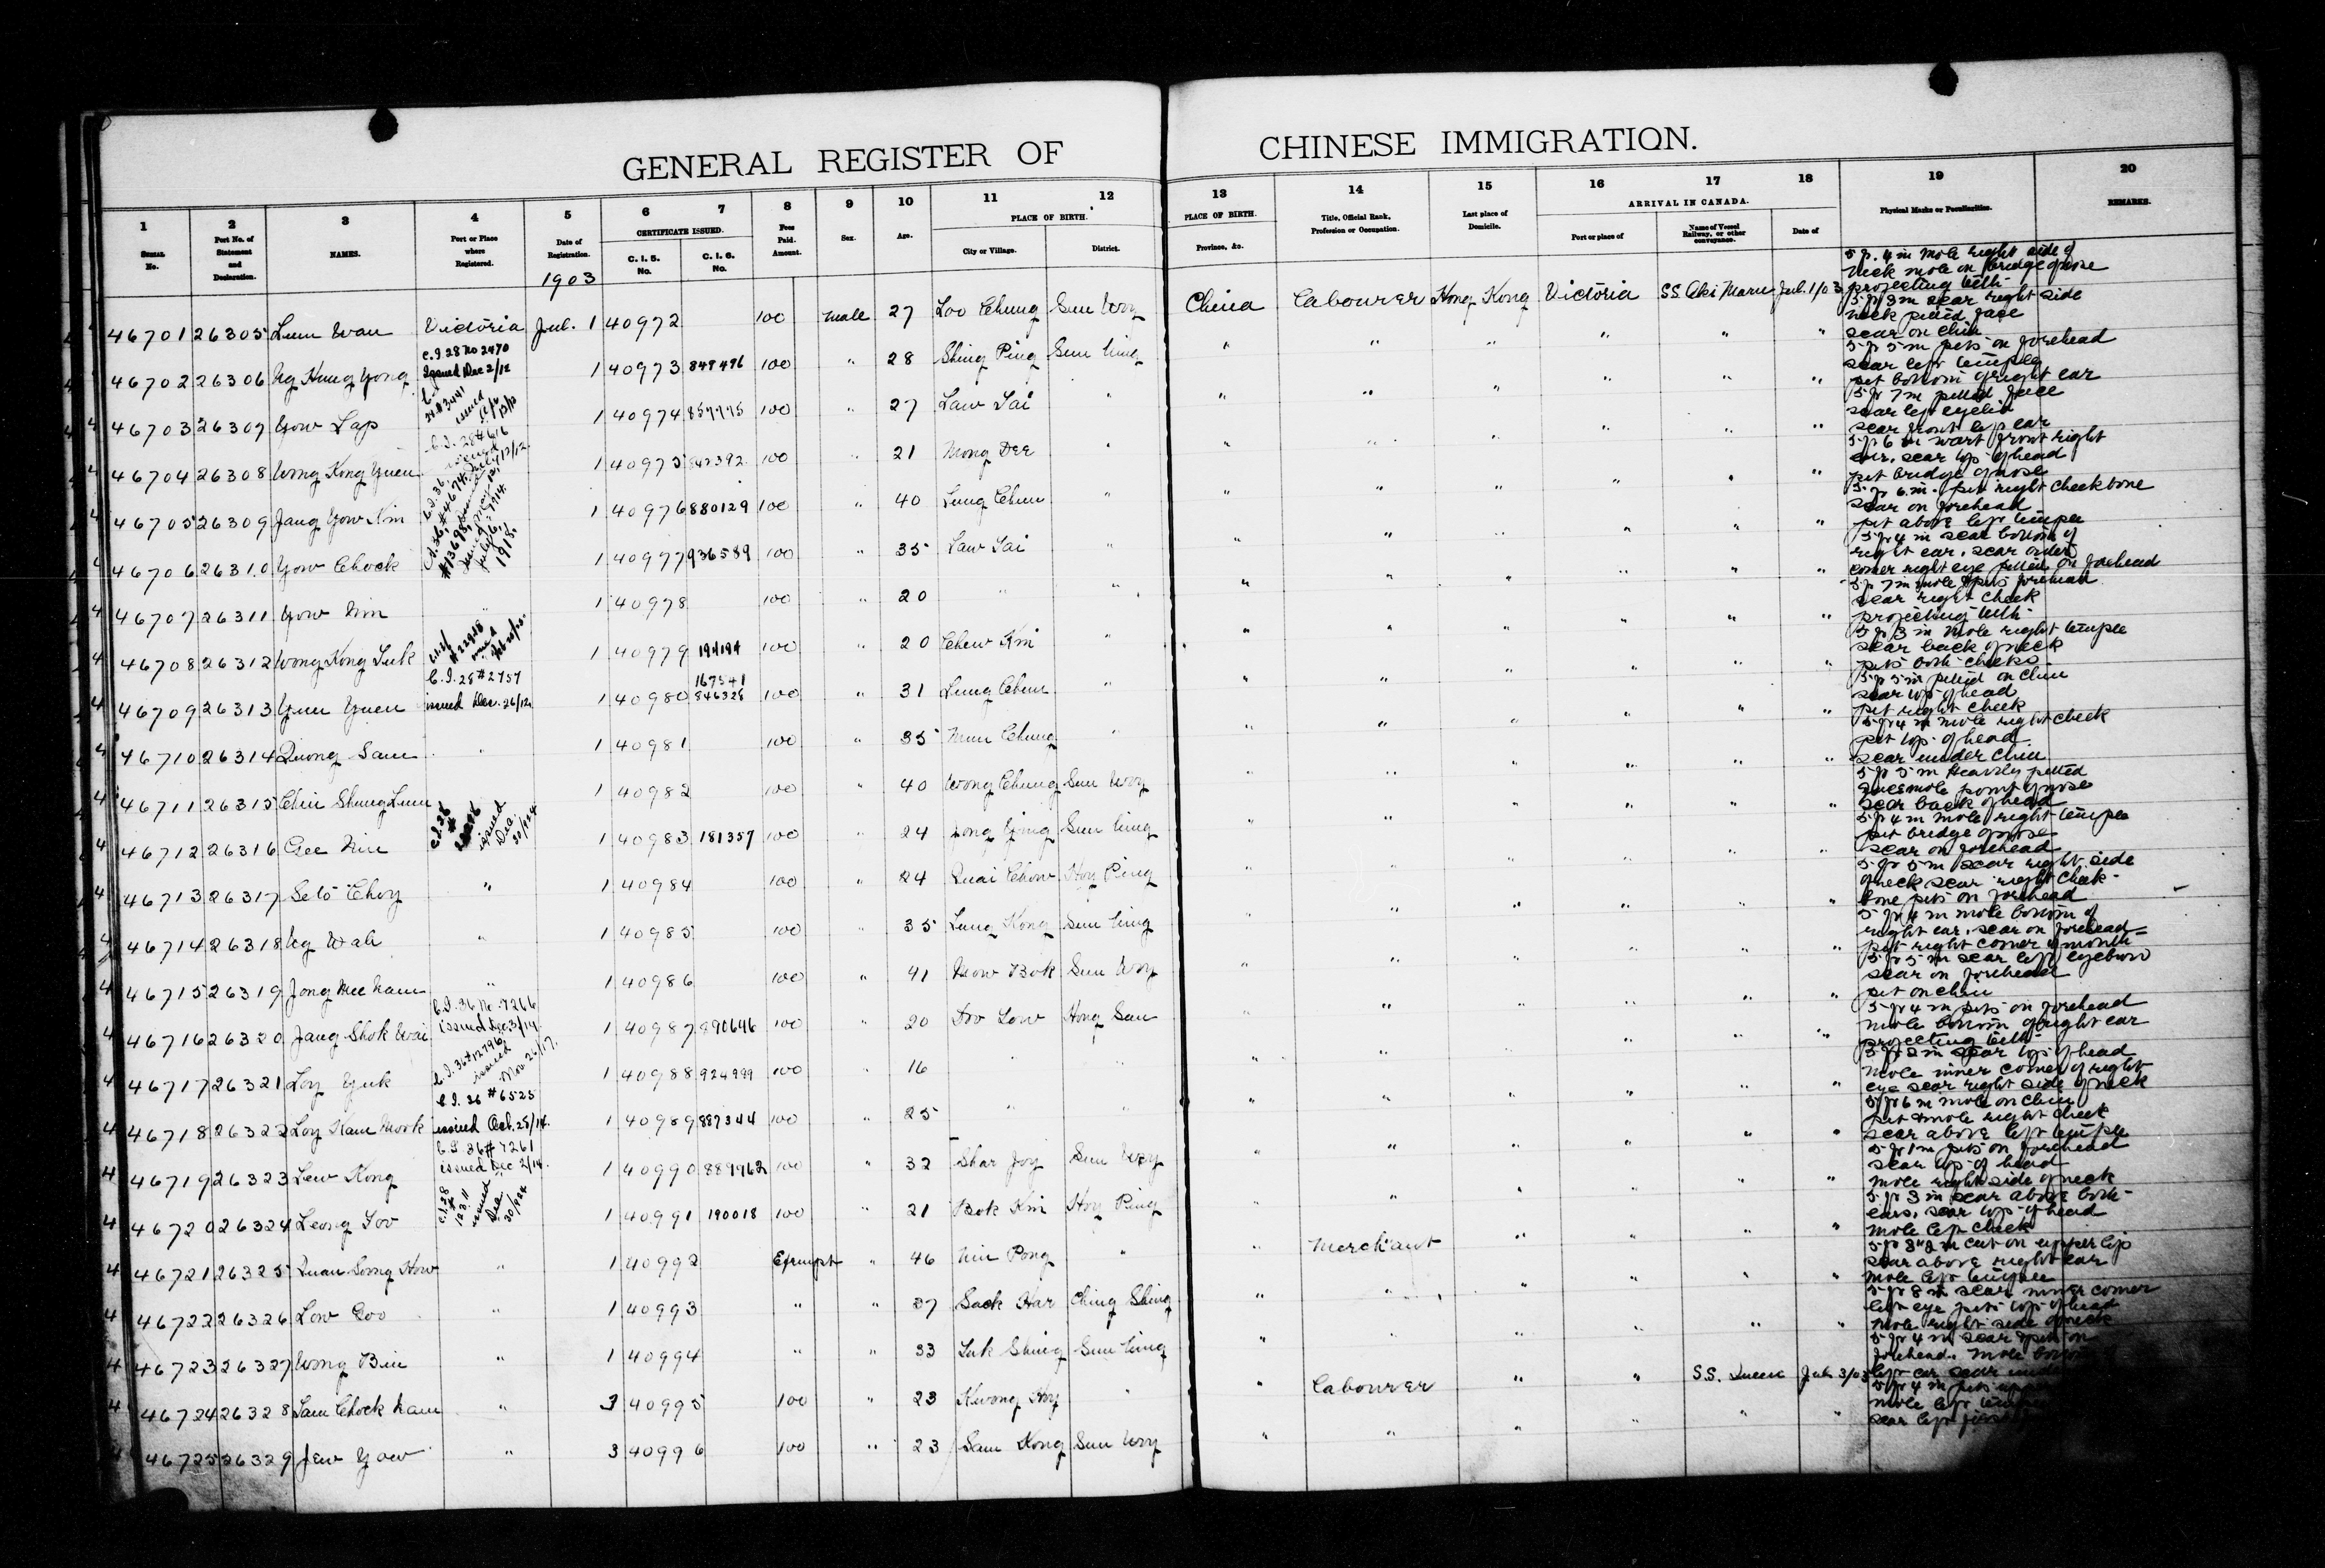 GENERAL REGISTER OF CHINESE IMMIGRATION.
1 2 3 4 5 6 7 8 9 10 11 12 13 14 15 16 17 18 19 20
CERTIFICATE ISSUED. PLACE OF BIRTH. PLACE OF BIRTH. ARRIVAL IN CANADA.
Serial No. Port No. of Statement and Declaration. NAMES. Port or Place where Registered. Date of Registration. C. I. 5. No. C. I. 6. No. Fees Paid. Amount. Sex. Age. City or Village. District. Province, &c. Title, Official Rank, Profession or Occupation. Last place of Domicile. Port or place of Name of Vessel Railway, or other conveyance. Date of Physical Marks or Peculiarities. REMARKS.
1903
46701 26305 Lum Wan Victoria Jul. 1 40972 100 male 27 Loo Chung Sun Woy China Labourer Hong Kong Victoria S.S. Aki Maru Jul. 1/03 5 f. 4 in mole right side of
neck mole on bridge of nose
projecting teeth
46702 26306 Ng Hung Yong C.I. 28 No 2470 1 40973 847496 100 " 28 Shing Ping Sun Ning " " " " " " 5 f 3 in scar right side
Issued Dec 2/12
neck pitted face
scar on chin
46703 26307 Yow Lap 1 40974 100 " 27 Law Tai " " " " " " " 5 f 5 in pits on forehead
scar left temple
pit bottom of right ear
46704 26308 Wong Kong Yuen 1 40975 842392 100 " 21 Mong Dee " " " " " " " 5 f 7 in pitted face
scar left eyelid
scar front left ear
46705 26309 Jang Yow Kim 1 40976 880129 100 " 40 Lung Chun " " " " " " " 5 f 6 in wart front right
ear, scar top of head
pit bridge of nose
46706 26310 Yow Chock 1918. 1 40977 936589 100 " 35 Law Tai " " " " " " " 5 f 6 in. pit right cheek bone
scar on forehead
pit above left temple
46707 26311 Yow Nim " 1 40978 100 " 20 " " " " " " " " 5 f 4 in scar bottom of
right ear, scar
corner right eye pitted on forehead
46708 26312 Wong Kong Tuk 1 40979 194194 100 " 20 Chew Kni " " " " " " " 5 f 7 in mole & pits forehead
scar right cheek
projecting teeth
46709 26313 Yuen Yuen C.I. 28 # 2757 1 40980 167541 846328 100 " 31 Lung Chun " " " " " " " 5 f 3 in mole right temple
issued Dec. 26/12
scar back of neck
pits both cheeks
46710 26314 Quong Sam " 1 40981 100 " 35 Mun Chung " " " " " " " 5 f 5 in pitted on chin
scar top of head
pit right cheek
46711 26315 Chin Shung Lum 1 40982 100 " 40 Wong Chung Sun Woy " " " " " " 5 f 4 in mole right cheek
pit top of head
scar under chin
46712 26316 Gee Nin 1 40983 181357 100 " 24 Jong Ging Sun Ning " " " " " " 5 f 5 in Heavily pitted
mole point of nose
scar back of head
46713 26317 Seto Choy " 1 40984 100 " 24 Quai Chow Hoy Ping " " " " " " 5 f 4 in mole right temple
pit bridge of nose
scar on forehead
46714 26318 Ng Wah " 1 40985 100 " 35 Lung Kong Sun Ning " " " " " " 5 f 5 in scar right side
of neck scar right cheek-
bone pits on forehead
46715 26319 Jong Mee Nam " 1 40986 100 " 41 Now Bok Sun Woy " " " " " " 5 f 4 in mole bottom of
right ear, scar on forehead
pit right corner of mouth
46716 26320 Jang Shok Wai C.I. 36 No. 7266 1 40987 890646 100 " 20 Doo Low Hong San " " " " " " 5 f 5 in scar left eyebrow
issued Dec. 3/14
scar on forehead
pit on chin
46717 26321 Loy Yuk C.I. 36 # 12796 issued Nov. 26/17. 1 40988 924999 100 " 16 " " " " " " " " 5 f 4 in pits on forehead
mole bottom of right ear
projecting teeth
46718 26322 Loy Kam Mook C.I. 36 # 6525 1 40989 887344 100 " 25 " " " " " " " " 5 f 2 in scar top of head
issued Oct. 28/14.
mole inner corner of right
eye scar right side of neck
46719 26323 Lew Kong C.I. 36 # 7261 1 40990 889962 100 " 32 Shar Joy Sun Woy " " " " " " 5 f 6 in mole on chin
issued Dec 2/14.
pit & mole right cheek
scar above left temple
46720 26324 Leong Foo C.I. 28 # 12311 issued Dec. 30/924 1 40991 190018 100 " 21 Bok Kin Hoy Ping " " " " " " 5 f 1 in pits on forehead
scar top of head
mole right side of neck
46721 26325 Quan Soong How " 1 40992 Exempt " 46 Nin Pong " " Merchant " " " " 5 f 3 in scar above both
ears, scar top of head
mole left cheek
46722 26326 Low Goo " 1 40993 " " 37 Sack Har Ching Shing " " " " " " cut on upper lip
scar above right ear
mole left temple
46723 26327 Wong Bin " 1 40994 " " 33 Luk Shing Sun Ning " " " " " " 5 f 8 in scar inner corner
left eye pits top of head
mole right side of neck
46724 26328 Sam Chock Nam " 3 40995 100 " 23 Kwong Hoy " " Labourer " " S.S. Queen Jul. 3/03 5 f 4 in scar & pit on
forehead. mole bottom
left ear scar
46725 26329 Jew Yow " 3 40996 100 " 23 Sam Kong Sun Woy " " " " " " 5 f 4 in pits
mole left
scar left first